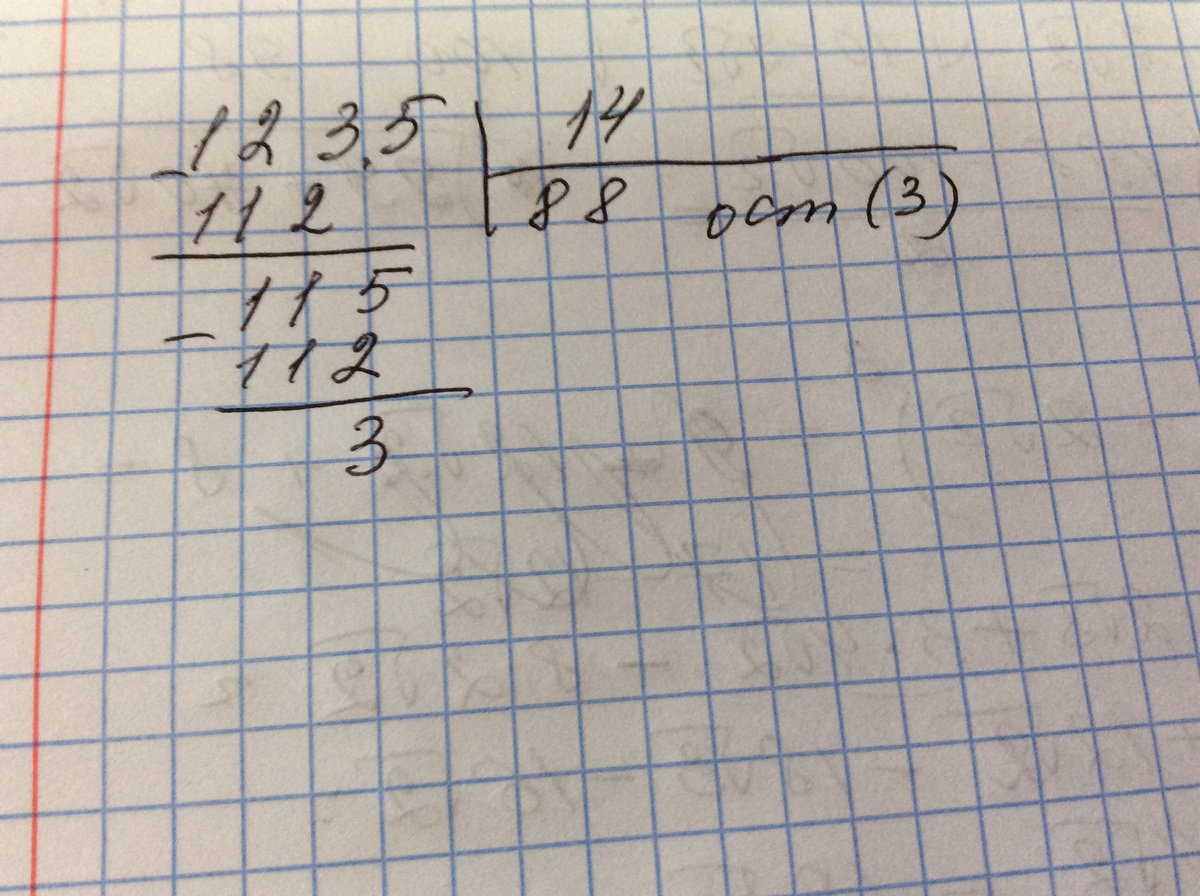 123.5 14
112 88 ост (3)
115
- 112
3